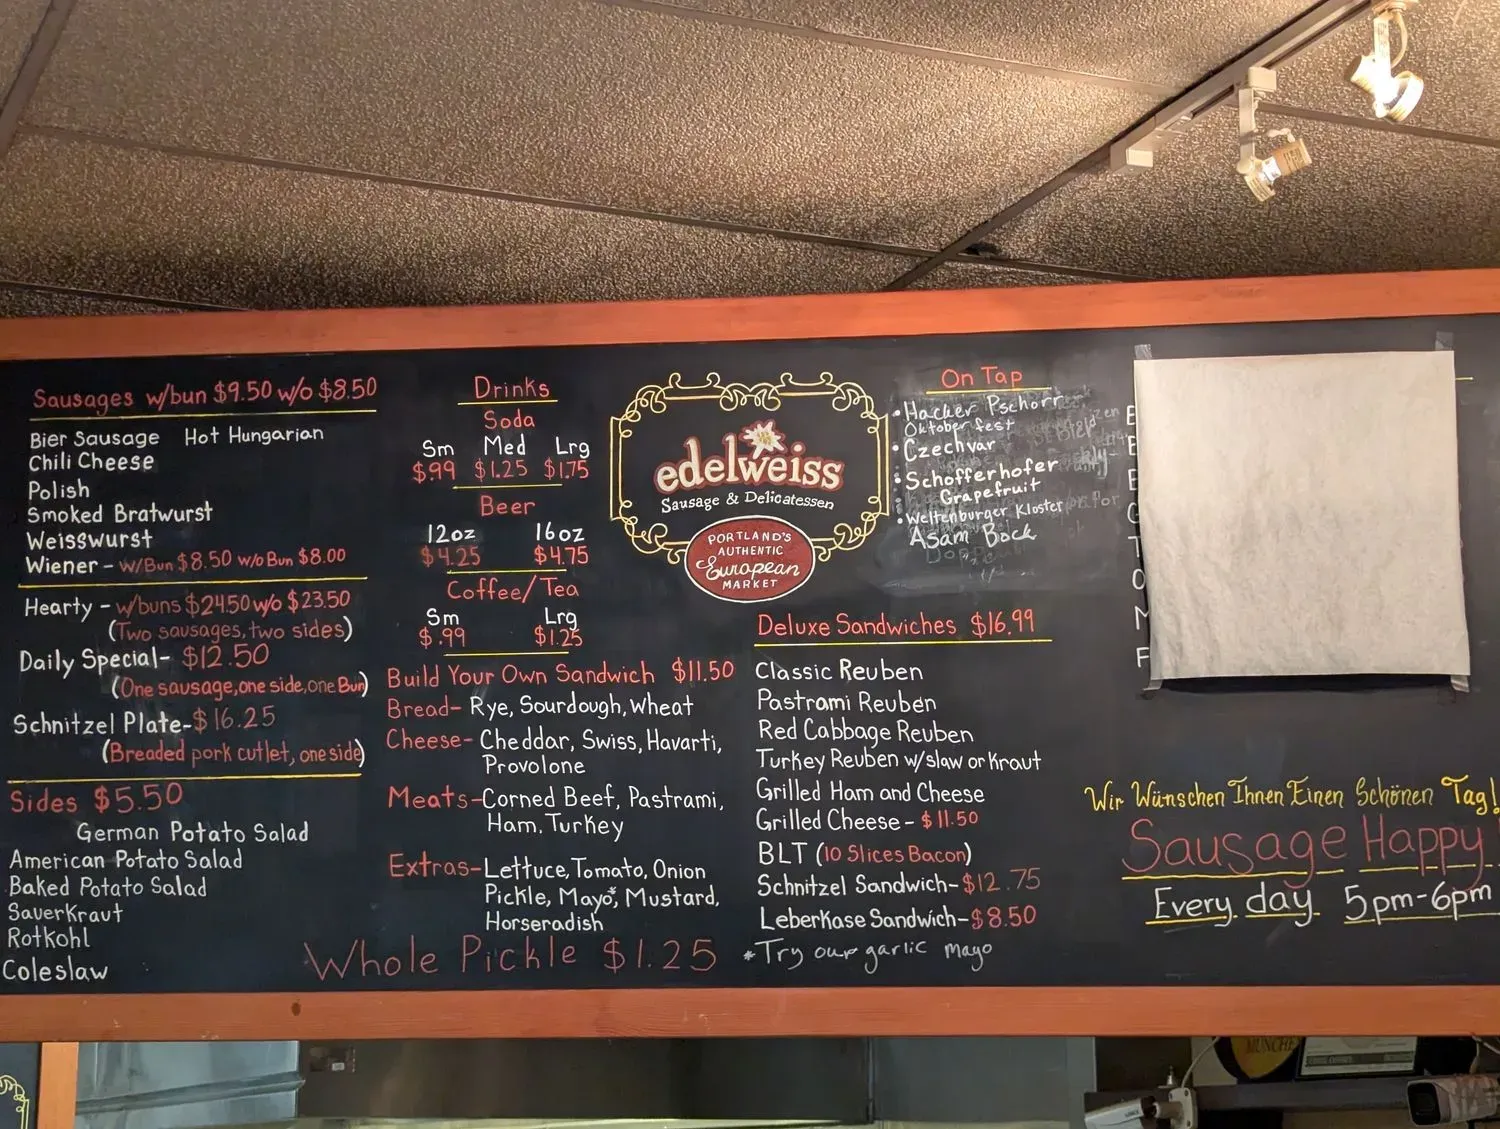 Sausages w/bun $9.50 w/o $8.50
Bier Sausage Hot Hungarian
Chili Cheese
Polish
Smoked Bratwurst
Weisswurst
Wiener - w/Bun $8.50 w/o Bun $8.00
Hearty - w/buns $24.50 w/o $23.50
(Two sausages, two sides)
Daily Special- $12.50
(One sausage, one side, one Bun)
Schnitzel Plate- $16.25
(Breaded pork cutlet, one side)
Sides $5.50
German Potato Salad
American Potato Salad
Baked Potato Salad
Sauerkraut
Rotkohl
Coleslaw
Drinks
Soda
Sm Med Lrg
$.99 $1.25 $1.75
Beer
12oz 16oz
$4.25 $4.75
Coffee/Tea
Sm Lrg
$.99 $1.25
Build Your Own Sandwich $11.50
Bread- Rye, Sourdough, Wheat
Cheese- Cheddar, Swiss, Havarti,
Provolone
Meats- Corned Beef, Pastrami,
Ham, Turkey
Extras- Lettuce, Tomato, Onion
Pickle, Mayo*, Mustard,
Horseradish
Whole Pickle $1.25
edelweiss
Sausage & Delicatessen
PORTLAND'S
AUTHENTIC
European
MARKET
On Tap
• Hacker Pschorr
Oktoberfest
• Czechvar
• Schofferhofer
Grapefruit
• Weltenburger Kloster
Asam Bock
Deluxe Sandwiches $16.99
Classic Reuben
Pastrami Reuben
Red Cabbage Reuben
Turkey Reuben w/slaw or Kraut
Grilled Ham and Cheese
Grilled Cheese - $11.50
BLT (10 Slices Bacon)
Schnitzel Sandwich- $12.75
Leberkase Sandwich- $8.50
*Try our garlic mayo
Wir Wünschen Ihnen Einen Schönen Tag!
Sausage Happy
Every day 5pm-6pm